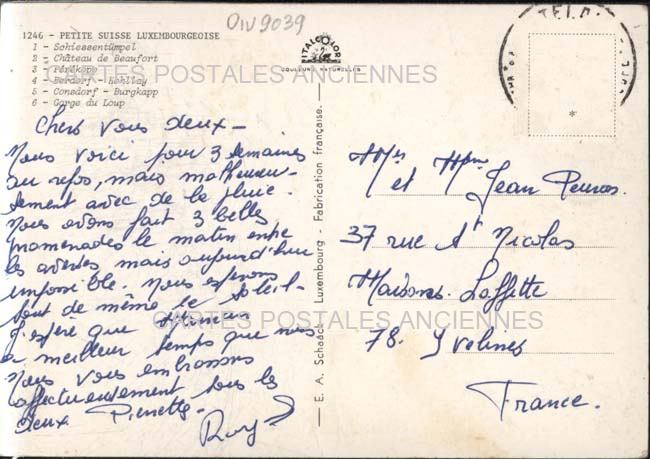 DIV9039
1246 - PETITE SUISSE LUXEMBOURGEOISE
1 - Schiessentümpel
2 - Château de Beaufort
3 - Perekopp
4 - Berdorf - Hohllay
5 - Consdorf - Burgkapp
6 - Gorge du Loup
ITALCOLOR
COULEURS NATURELLES
CARTES POSTALES ANCIENNES
Chers vous deux -
Nous voici pour 3 semaines
au repos, mais malheureu-
sement avec de la pluie.
Nous avons fait 3 belles
promenades le matin entre
les averses mais aujourd'hui
impossible. Nous espérons
tout de même le soleil -
J'espère que
a meilleur temps que nous
Nous vous embrassons
affectueusement tous les
deux Pierrette -
E. A. Schaack - Luxembourg - Fabrication française.
*
Mr et Mme Jean
37 rue St Nicolas
Maisons. Laffitte
78. Yvelines
France.
CARTES POSTALES ANCIENNES